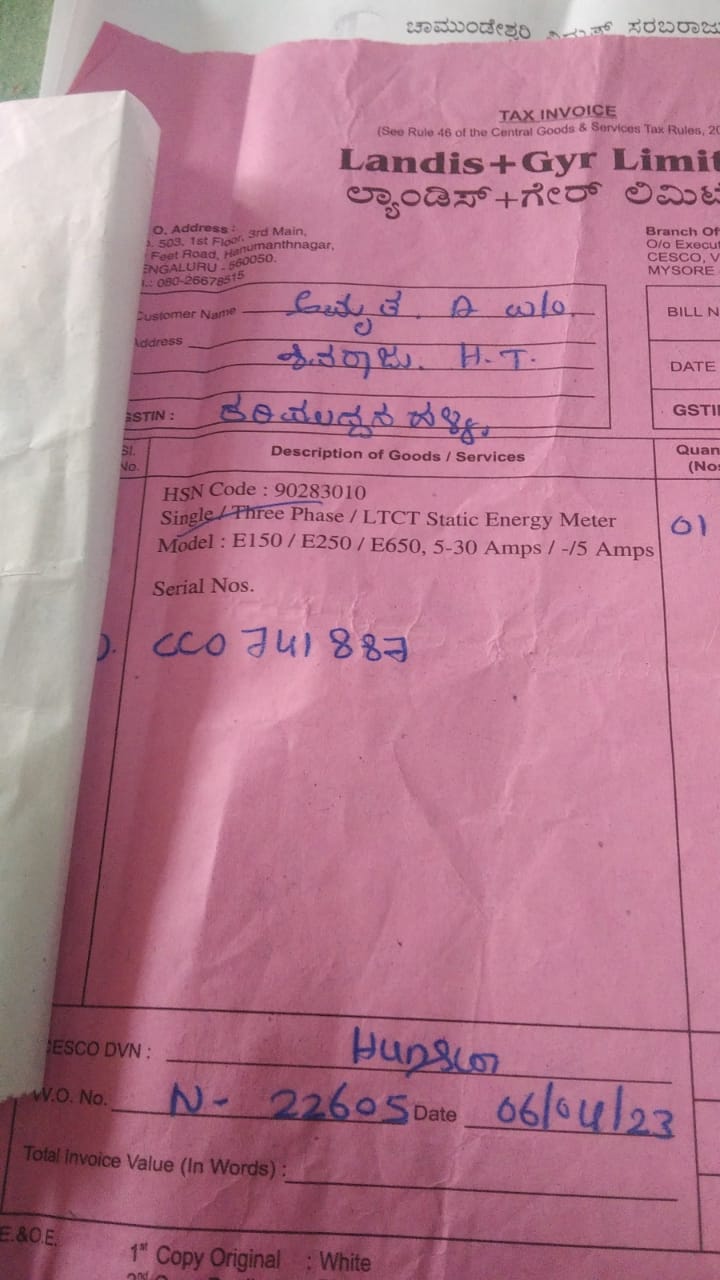 ಚಾಮುಂಡೇಶ್ವರಿ ವಿದ್ಯುತ್ ಸರಬರಾಜು
TAX INVOICE
(See Rule 46 of the Central Goods & Services Tax Rules, 20
Landis+Gyr Limit
ಲ್ಯಾಂಡಿಸ್+ಗೇರ್ ಲಿಮಿಟೆ
O. Address :
503, 1st Floor, 3rd Main,
Feet Road, Hanumanthnagar,
ENGALURU - 560050.
.: 080-26678515
Branch Of
O/o Execut
CESCO, V
MYSORE
Customer Name ಅಮೃತ. D w/o.
Address ಶಿವರಾಜು. H.T.
GSTIN :
BILL N
DATE
GSTI
Sl. No.
Description of Goods / Services
Quan
(No
HSN Code : 90283010
Single / Three Phase / LTCT Static Energy Meter 01
Model : E150 / E250 / E650, 5-30 Amps / -/5 Amps
Serial Nos.
). CC0741887
CESCO DVN :
W.O. No. N- 22605 Date 06/04/23
Total Invoice Value (In Words) :
E.&O.E.
1st Copy Original : White